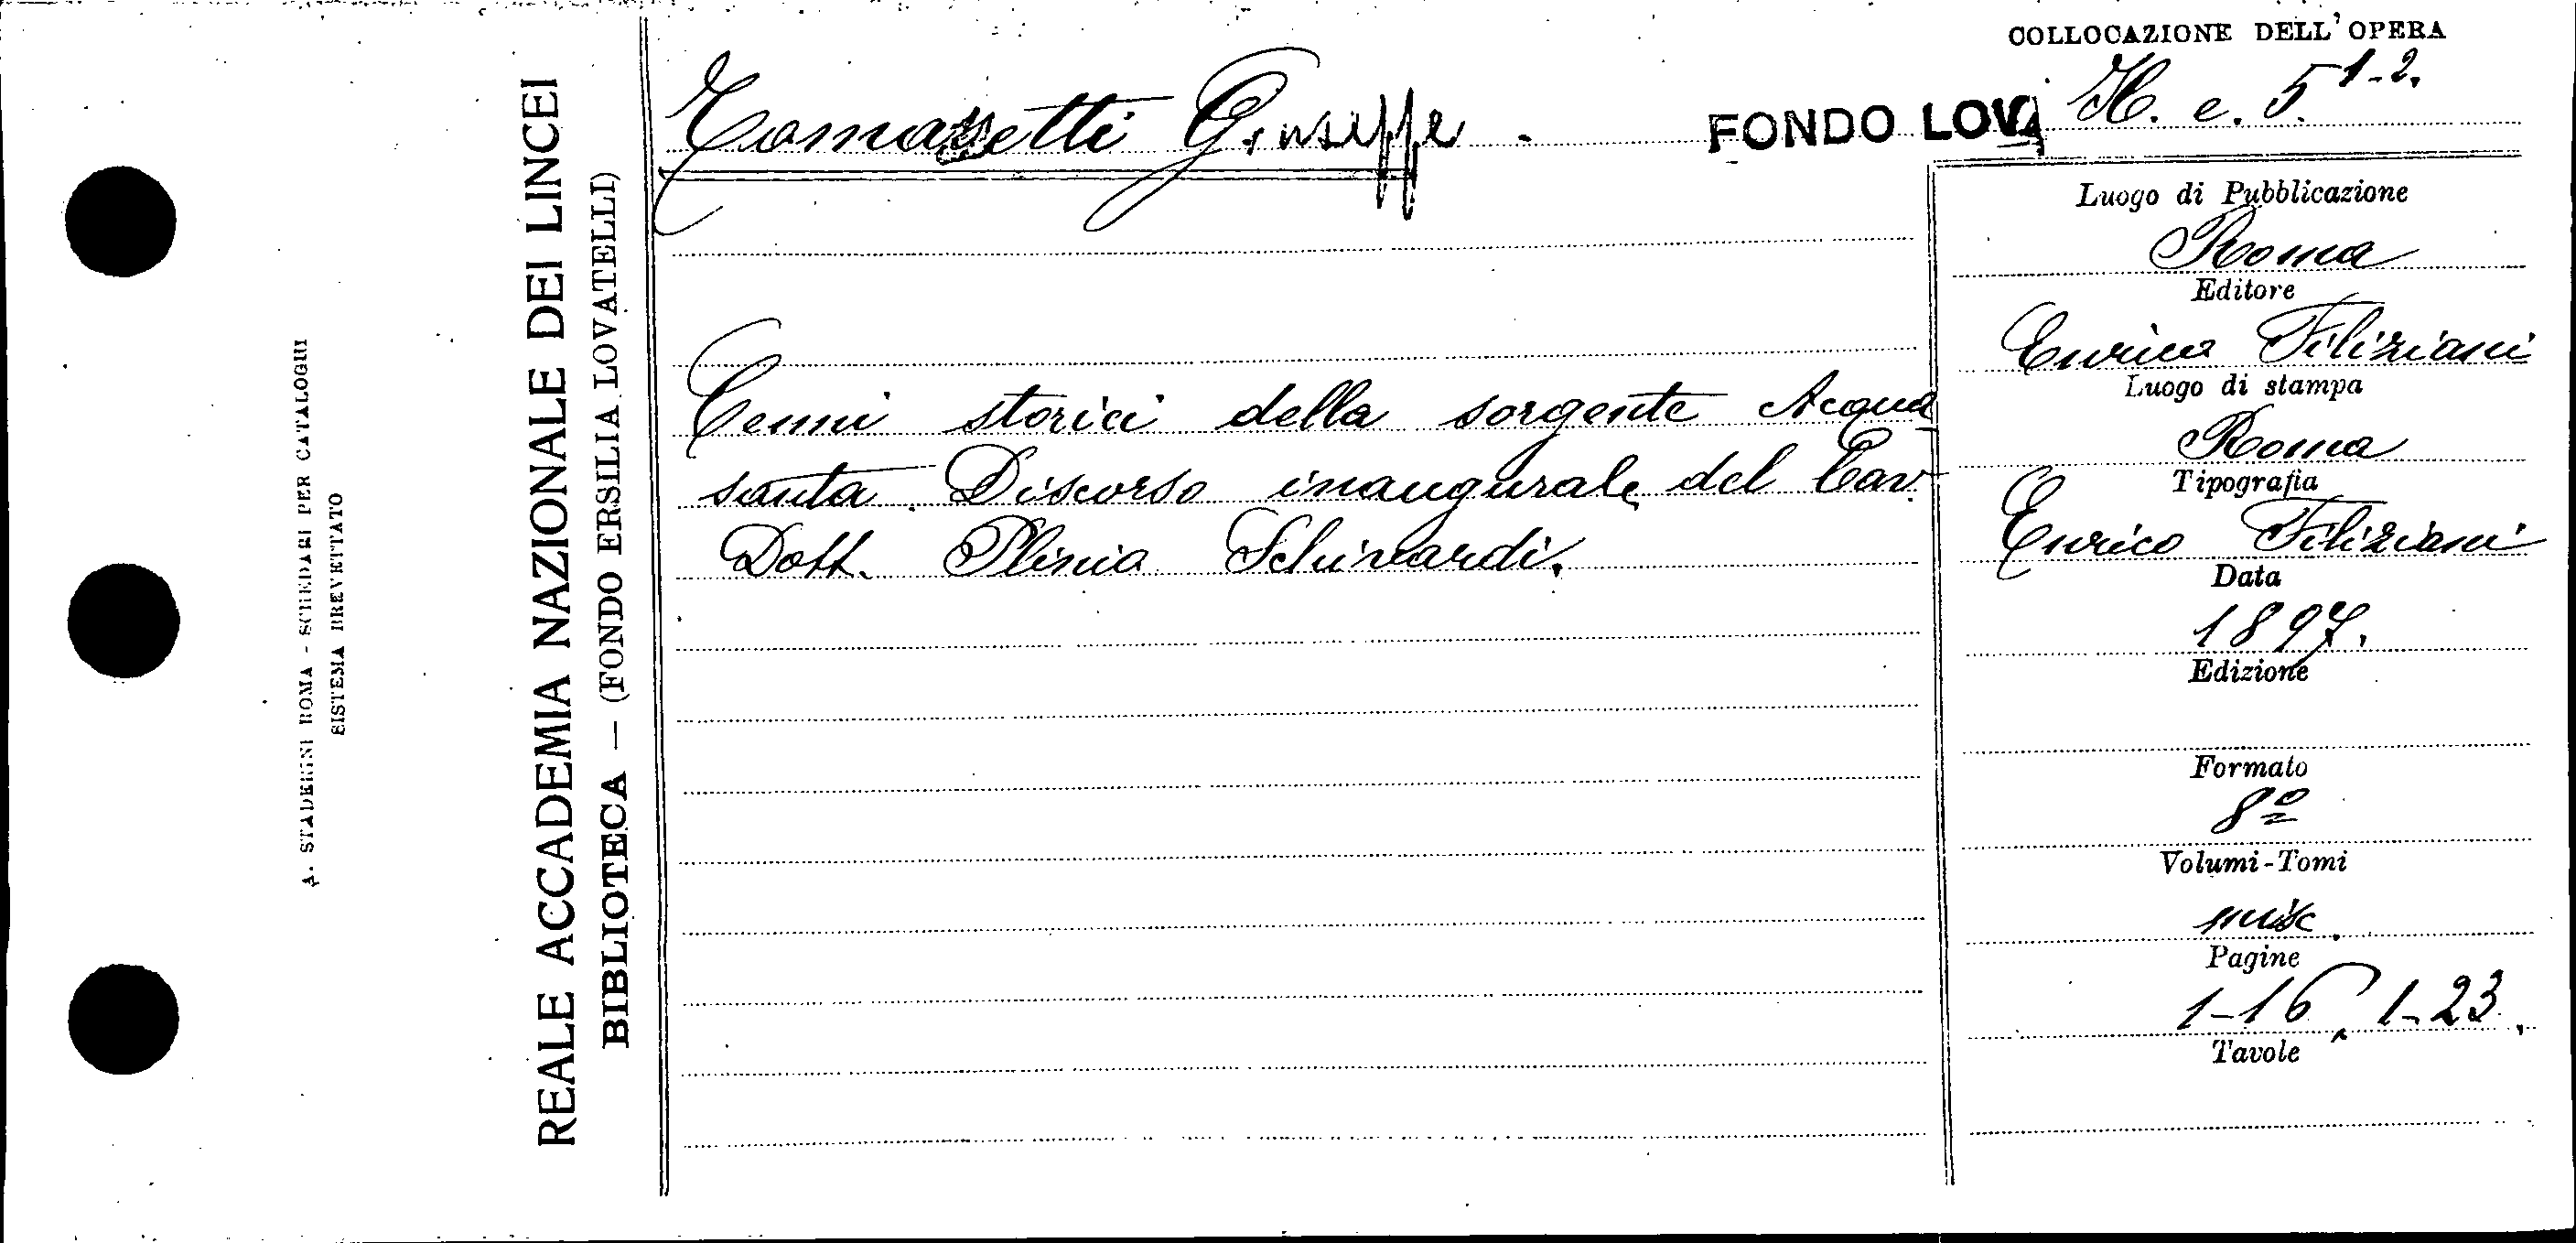 COLLOCAZIONE DELL'OPERA
Tomassetti Giuseppe.
FONDO LOV. H. e. 5. 1-2.
Cenni storici della sorgente Acqua
santa. Discorso inaugurale del Cav.
Dott. Plinio Schivardi.
Luogo di Pubblicazione
Roma
Editore
Enrico Filiziani
Luogo di stampa
Roma
Tipografia
Enrico Filiziani
Data
1897.
Edizione
Formato
8º
Volumi-Tomi
misc.
Pagine
1-16, 1-23.
Tavole
REALE ACCADEMIA NAZIONALE DEI LINCEI
BIBLIOTECA — (FONDO ERSILIA LOVATELLI)
A. STADERINI ROMA - SCHEDARI PER CATALOGHI
SISTEMA BREVETTATO